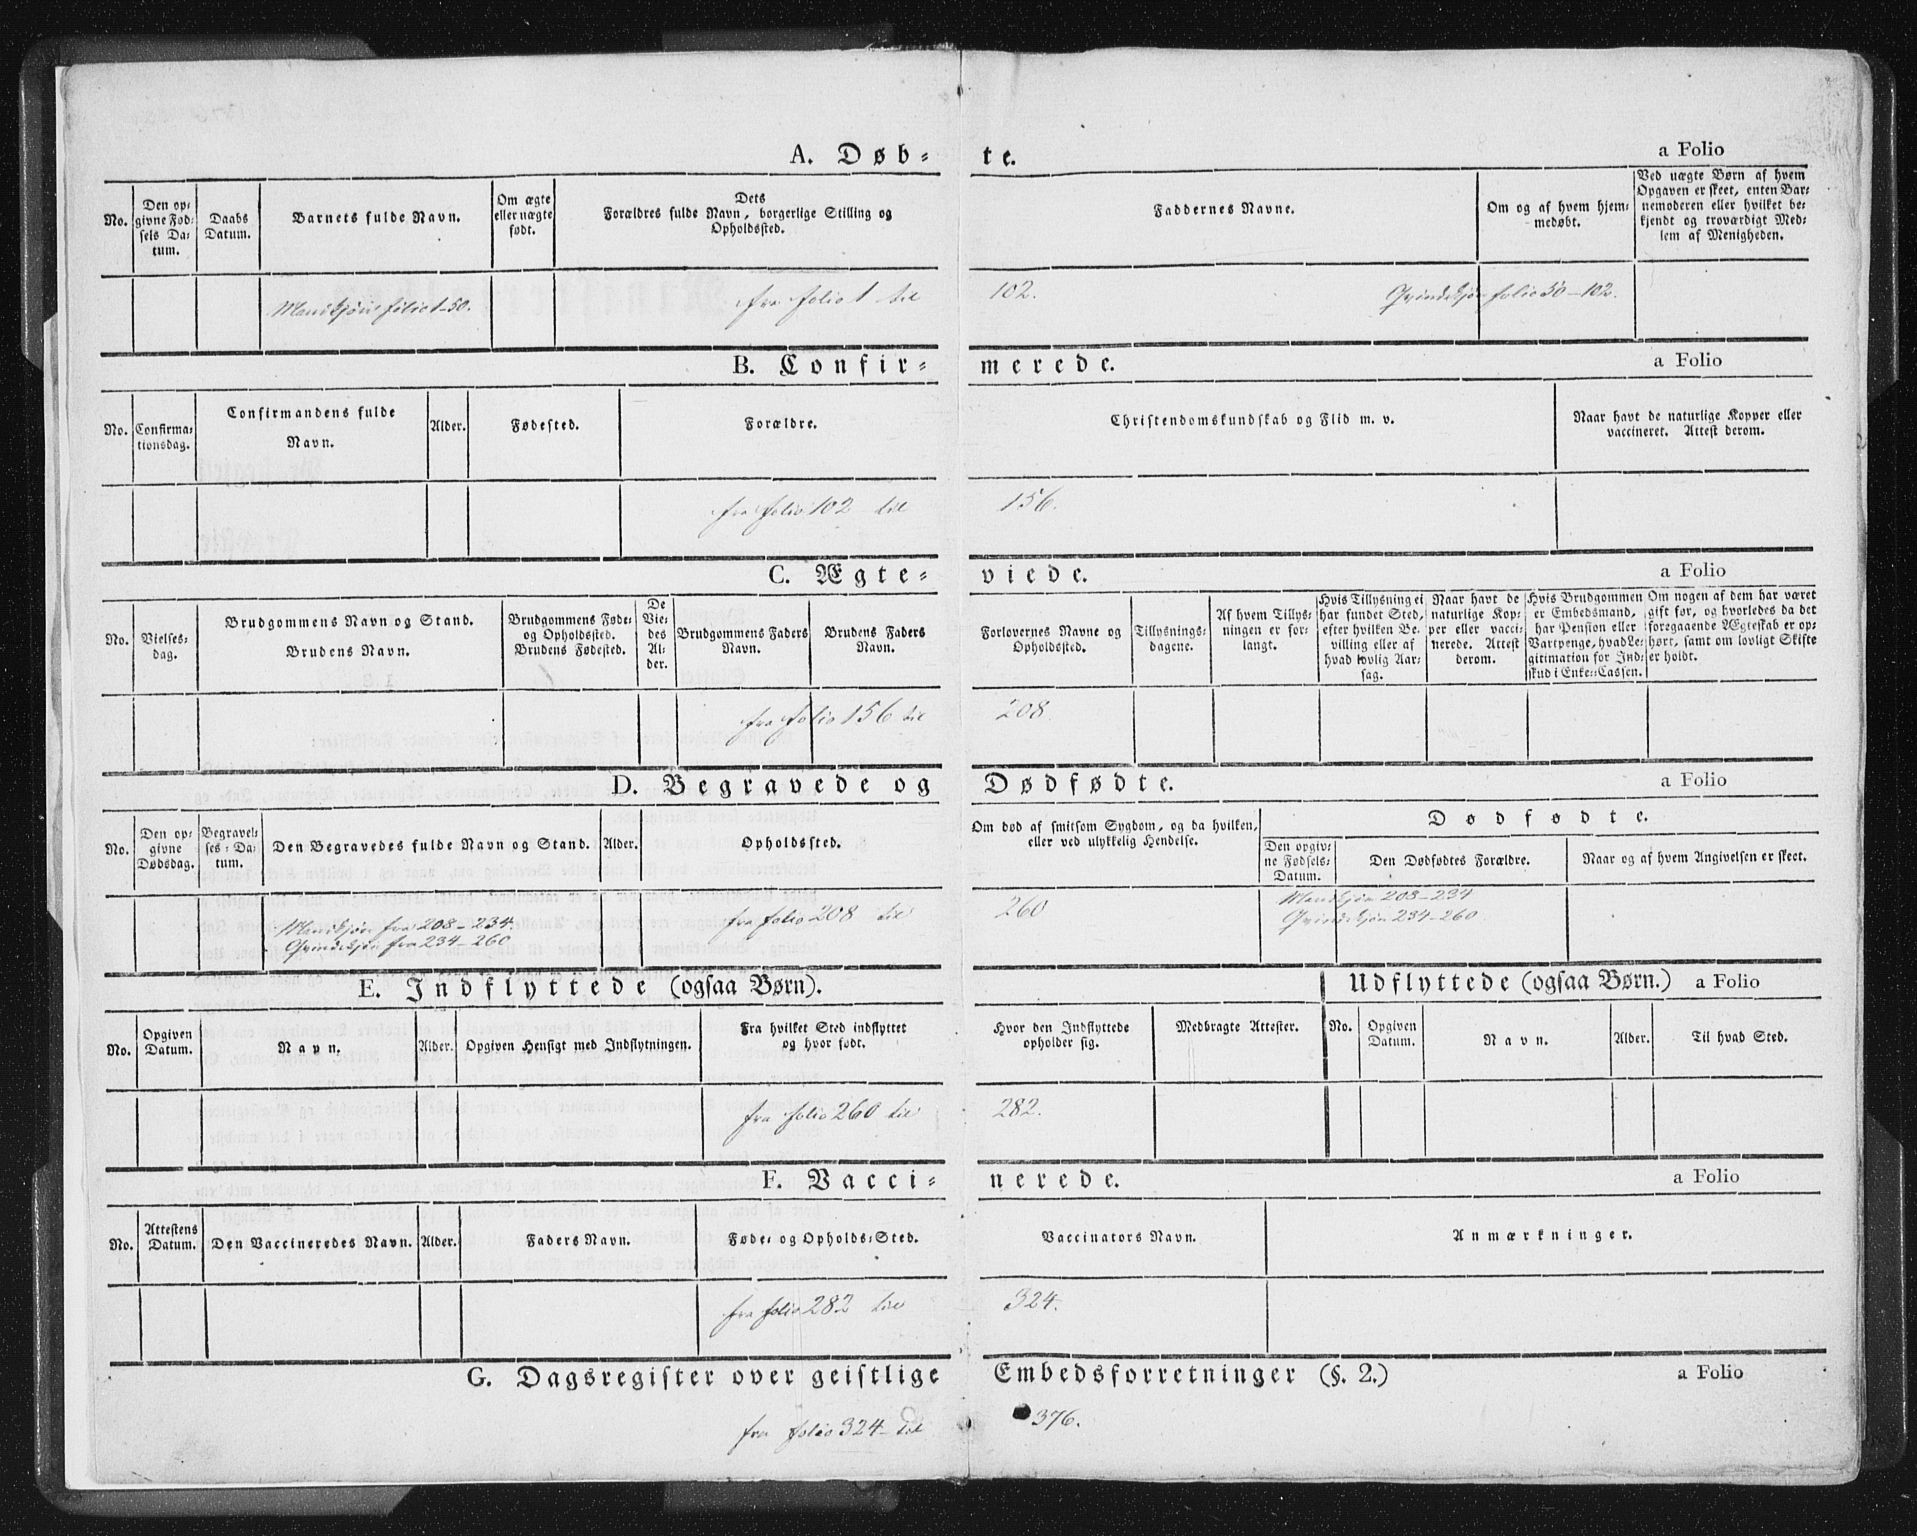 A. Døb-te. a Folio
No.
Den op-
givne Fød-
sels Da-
tum.
Daabs
Datum.
Barnets fulde Navn.
Om ægte
eller uægte
født.
Dets
Forældres fulde Navn, borgerlige Stilling og
Opholdssted.
Faddernes Navne.
Om og af hvem hjem-
medøbt.
Ved uægte Børn af hvem
Opgaven er skeet, enten Bar-
nemoderen eller hvilket be-
kjendt og troværdigt Med-
lem af Menigheden.
Mandkjøn folio 1-50.
fra folio 1 til 102.
Qvindekjøn folio 50-102.
B. Confir-merede. a Folio
No.
Confirma-
tionsdag.
Confirmandens fulde
Navn.
Alder.
Fødested.
Forældre.
Christendomskundskab og Flid m. v.
Naar havt de naturlige Kopper eller
vaccineret. Attest derom.
fra folio 102 til 156.
C. Ægte-viede. a Folio
No.
Vielses-
dag.
Brudgommens Navn og Stand.
Brudens Navn.
Brudgommens Føde-
og Opholdssted.
Brudens Fødested.
De
Vie-
des
Al-
der.
Brudgommens Faders
Navn.
Brudens Faders
Navn.
Forlovernes Navne og
Opholdssted.
Tillysnings-
dagene.
Af hvem Tillys-
ningen er for-
langt.
Hvis Tillysning ei
har fundet Sted,
efter hvilken Be-
villing eller af
hvad lovlig Aar-
sag.
Naar havt de
naturlige Kop-
per eller vacci-
nerede. Attest
derom.
Hvis Brudgommen
er Embedsmand,
har Pension eller
Vartpenge, hvad Le-
gitimation for Ind-
skud i Enke-Cassen.
Om nogen af dem har været
gift før, og hvorledes da det
foregaaende Ægteskab er op-
hørt, samt om lovligt Skifte
er holdt.
fra folio 156 til 208.
D. Begravede og Dødfødte. a Folio
No.
Den op-
givne
Dødsdag.
Begravel-
ses-Da-
tum.
Den Begravedes fulde Navn og Stand.
Alder.
Opholdssted.
Om død af smitsom Sygdom, og da hvilken,
eller ved ulykkelig Hendelse.
Dødfødte.
Den opgiv-
ne Fødsels-
Datum.
Den Dødfødtes Forældre.
Naar og af hvem Angivelsen er skeet.
Mandkjøn fra 208-234
Qvindekjøn fra 234-260
fra folio 208 til 260
Mandkjøn 208-234
Qvindekjøn 234-260
E. Indflyttede (ogsaa Børn). Udflyttede (ogsaa Børn.) a Folio
No.
Opgiven
Datum.
Navn.
Alder.
Opgiven Hensigt med Indflytningen.
Fra hvilket Sted indflyttet
og hvor født.
Hvor den Indflyttede
opholder sig.
Medbragte Attester.
No.
Opgiven
Datum.
Navn.
Alder.
Til hvad Sted.
fra folio 260 til 282.
F. Vacci-nerede. a Folio
No.
Attestens
Datum.
Den Vaccineredes Navn.
Alder.
Faders Navn.
Føde- og Opholds-Sted.
Vaccinators Navn.
Anmærkninger.
fra folio 282 til 324.
G. Dagsregister over geistlige Embedsforretninger (§. 2.) a Folio
fra folio 324 til 376.